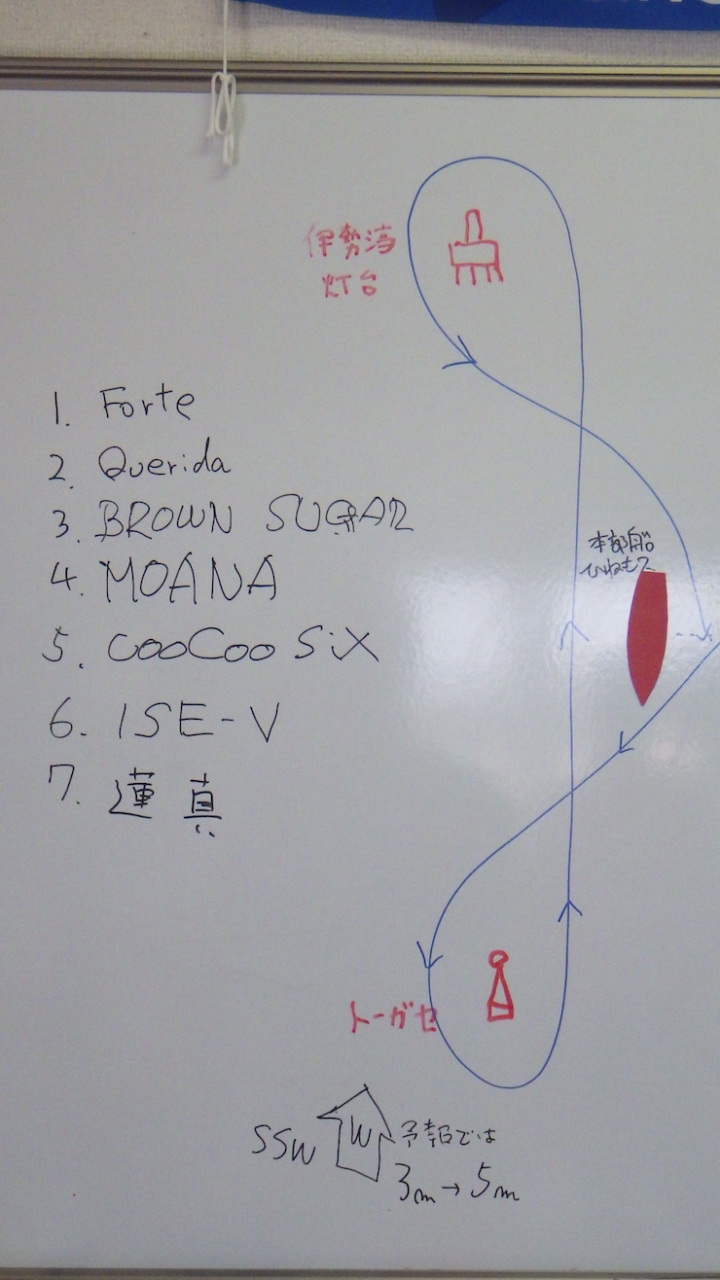 伊勢湾
灯台
1. Forte
2. Querida
3. BROWN SUGAR
4. MOANA
5. CooCoo SiX
6. ISE-V
7. 蓮真
本部船
ひねもス
トーガセ
SSW
W
予報では
3m→5m